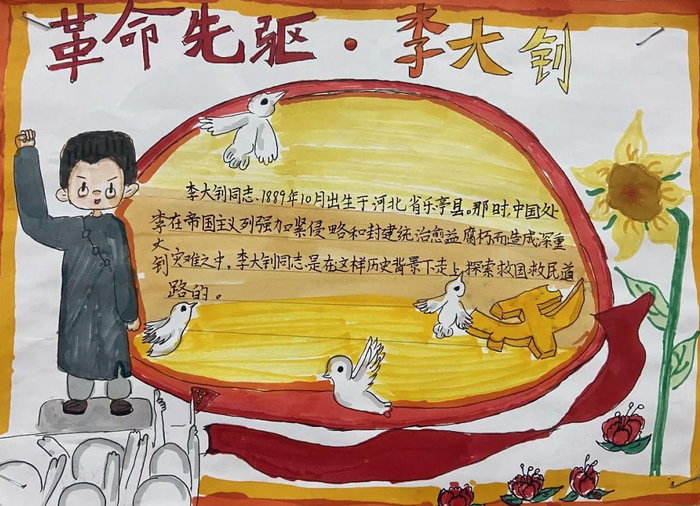 革命先驱·李大钊
李大钊同志、1889年10月出生于河北省乐亭县。那时中国处
在帝国主义列强加紧侵略和封建统治愈益腐朽而造成深重
灾难之中，李大钊同志是在这样历史背景下走上探索救国救民道
路的。
李大钊